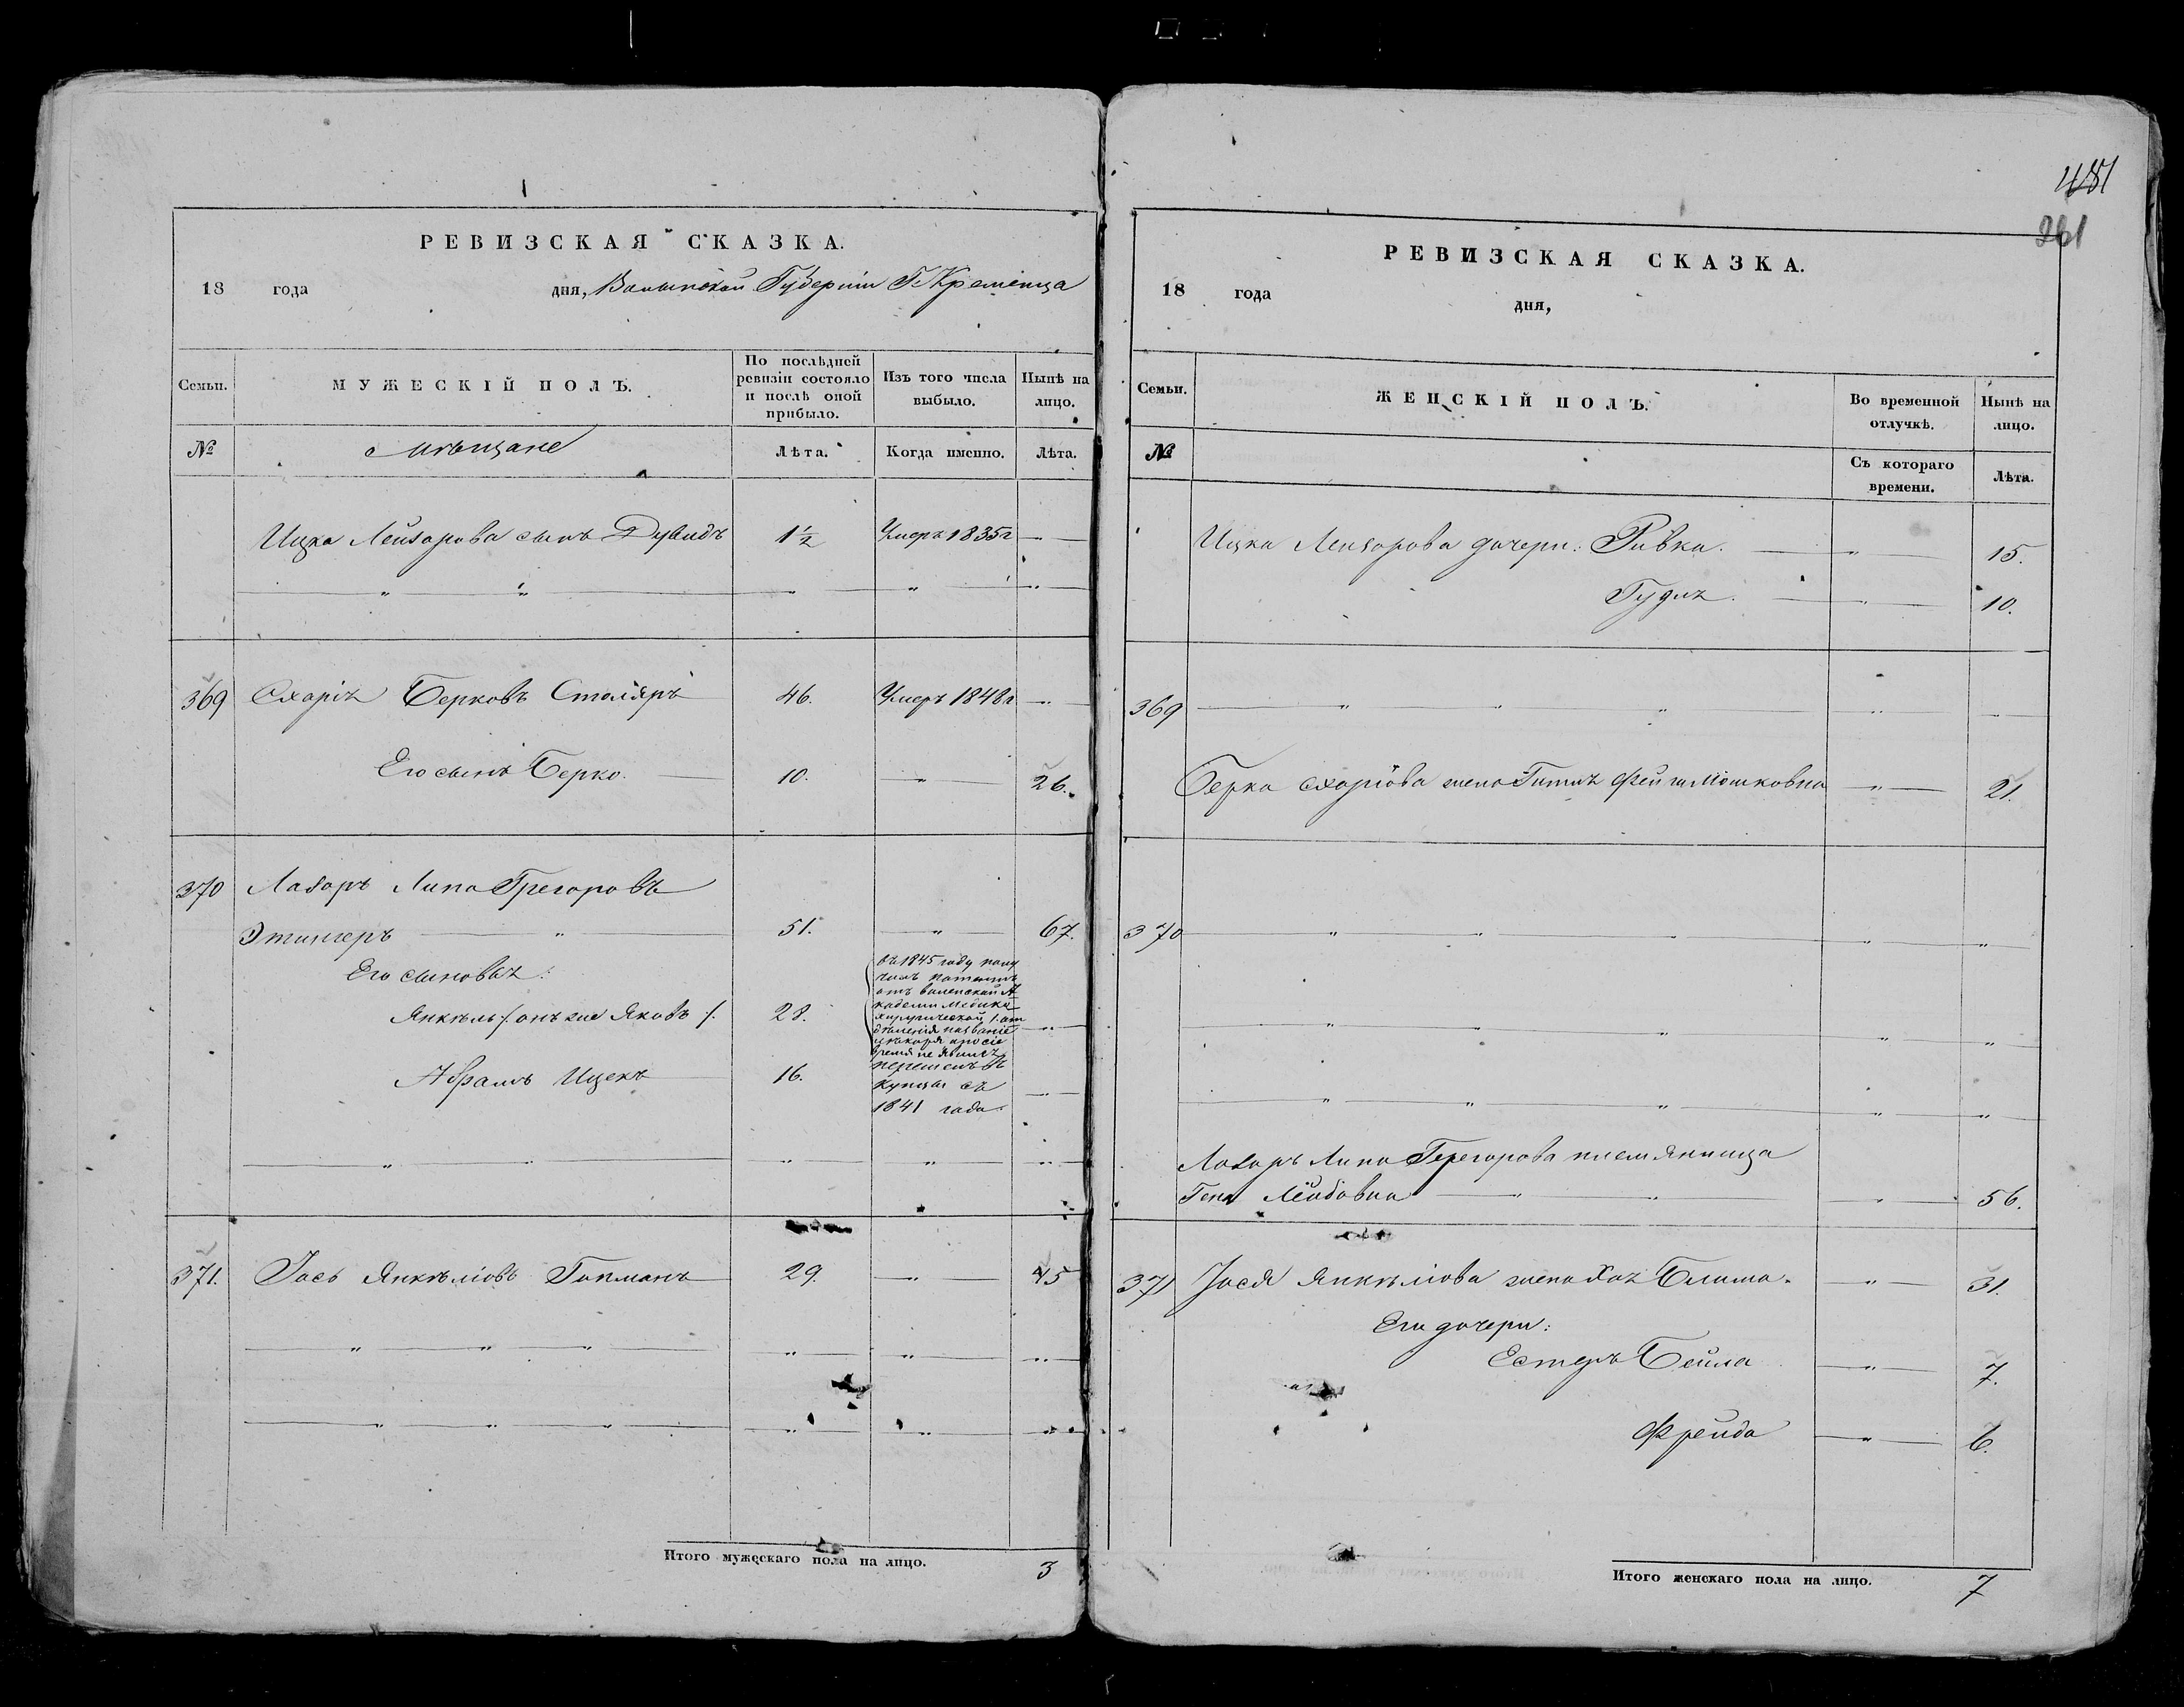 РЕВИЗСКАЯ СКАЗКА.
18 года дня, Волынской Губерніи Г. Кременца
Семьи.
МУЖЕСКІЙ ПОЛЪ.
По послѣдней ревизіи состояло и послѣ оной прибыло.
Изъ того числа выбыло.
Нынѣ на лицо.
№
Мѣщане
Лѣта.
Когда именно.
Лѣта.
Ицка Лейзорова сынъ Дувидъ 1½ Умеръ 1835 г
369 Схаріе Берковъ Столяръ 46. Умеръ 1848 г
Его сынъ Берко. 10. 26.
370 Лазоръ Липа Грегоровъ
Этингеръ 51. 67.
Его сыновья:
Янкель /. онъ же Яковъ /. 28.
въ 1845 году полу
чилъ
отъ виленской А
кадеміи Медико
хирургической 1. от
дѣленія названіе
лѣкаря и по сіе
время не
Абрамъ Ицекъ 16.
перешелъ въ
купцы съ
1841 года.
371. Іось Янкелiовъ 29. 45
Итого мужескаго пола на лицо. 3
481
261
РЕВИЗСКАЯ СКАЗКА.
18 года дня,
Семьи.
ЖЕНСКІЙ ПОЛЪ.
Во временной отлучкѣ.
Нынѣ на лицо.
№
Съ котораго времени.
Лѣта.
Ицка Лейзорова дочери: Ривка. 15.
Гудля. 10.
369
Берка Схаріова жена Гитля Фейга Мошковна 21.
370
Лазоръ Липа Грегорова племянница
Геня Лейбовна 56.
371 Іося Янкелiова жена Хая Блима. 31.
Его дочери:
Естеръ Бейла 7.
Фрейда 6.
Итого женскаго пола на лицо. 7